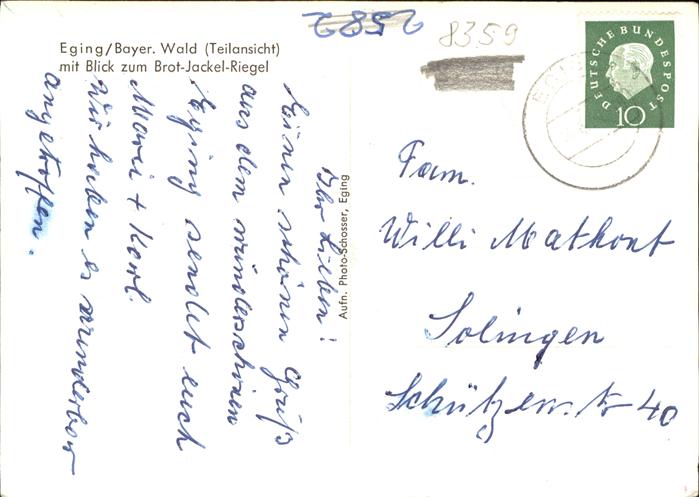 Eging/Bayer. Wald (Teilansicht)
mit Blick zum Brot-Jackel-Riegel
2587
8359
DEUTSCHE BUNDESPOST
10
Ihr Lieben!
Einen schönen Gruß
aus dem wunderschönen
Eging sendet euch
Marii + Karl.
Wir haben es wunderbar
angetroffen.
Aufn. Photo-Schosser, Eging
Fam.
Willi Matkont
Solingen
Schützenstr 40